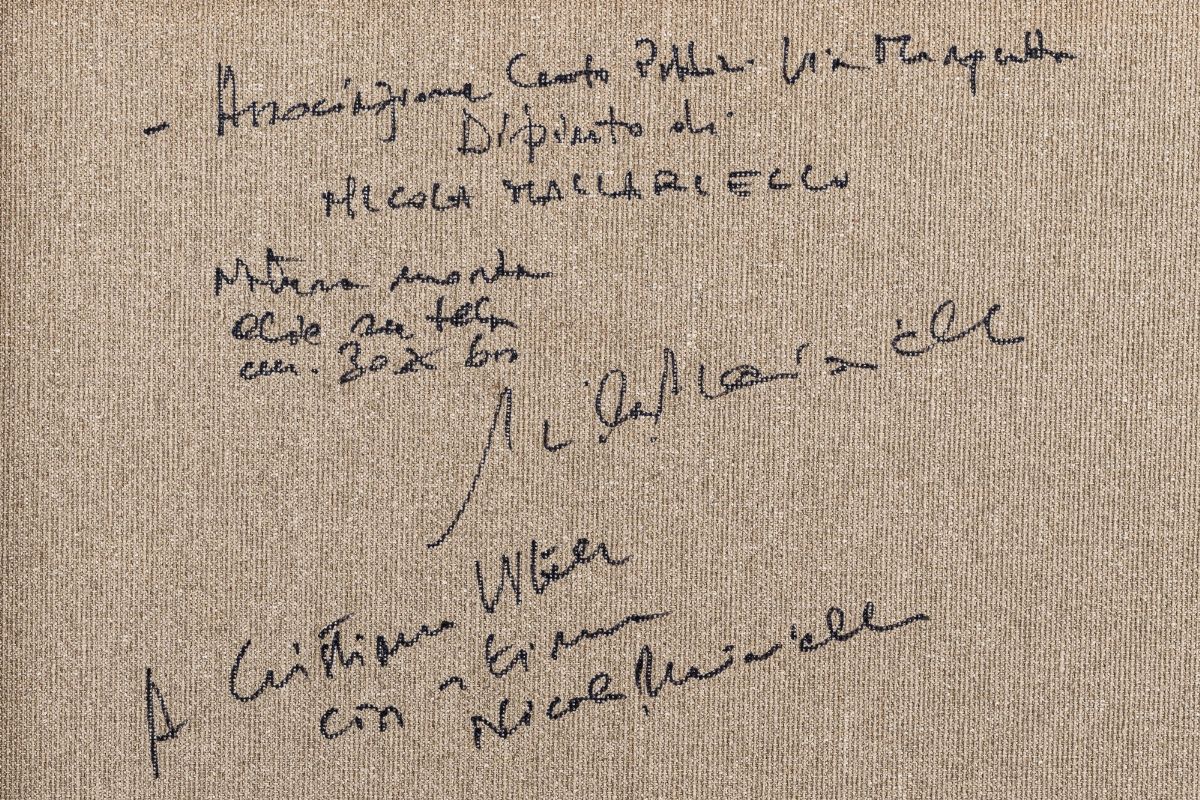 - Associazione Cento Pittori Via Margutta
Dipinto di
NICOLA MACCARIELLO
Natura morta
olio su tela
cm. 30 x 60
A Cristiana
con stima
Nicola Maccariello